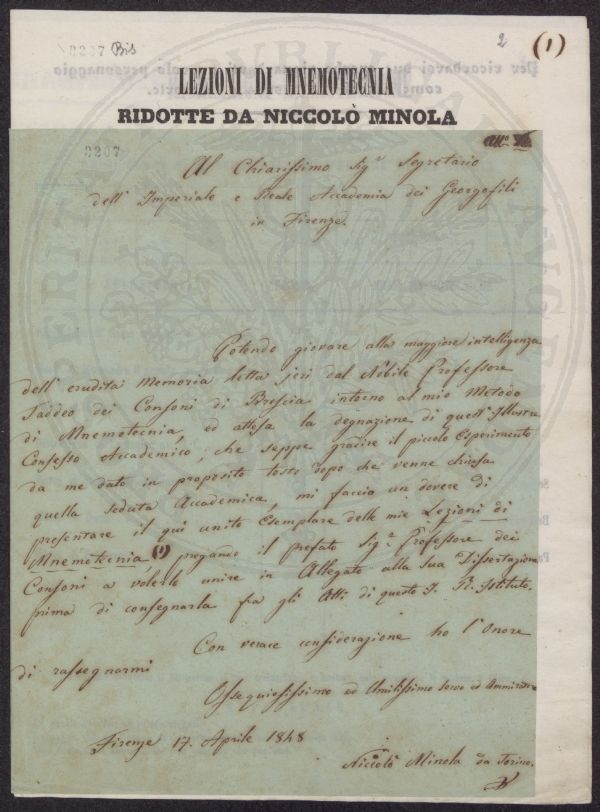 2207 Bis
2 (1)
LEZIONI DI MNEMOTECNIA
RIDOTTE DA NICCOLÒ MINOLA
2207
Al Chiarissimo Sigr Segretario
dell' Imperiale e Reale Accademia dei Georgofili
in Firenze.
Potendo giovare alla maggiore intelligenza
dell' erudita Memoria letta jeri dal Nobile Professore
Taddeo dei Consoni di Brescia intorno al mio Metodo
di Mnemotecnia, ed attesa la degnazione di quest' Illustre
Consesso Accademico; che seppe gradire il piccolo Esperimento
da me dato in proposito tosto dopo che venne chiusa
quella seduta Accademica, mi faccio un dovere di
presentare il qui unito Esemplare delle mie Lezioni di
Mnemotecnia (1) pregando il prefato Sigr Professore dei
Consoni a volerlo unire in Allegato alla sua Dissertazione
prima di consegnarla fra gli Atti di questo I. R. Istituto.
Con verace considerazione ho l'Onore
di rassegnarmi
Ossequiosissimo ed Umilissimo servo ed Ammiratore
Firenze 17. Aprile 1848
Niccolò Minola da Torino.